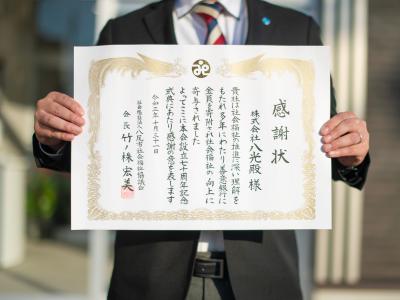 感謝状
株式会社八光殿 様
貴社は社会福祉の推進に深い理解を
もたれ多年にわたり善意銀行に
金員を寄附され社会福祉の向上に
寄与されました
よってここに本会設立七十周年記念
式典にあたり感謝の意を表します
令和三年十月三十一日
社会福祉法人八尾市社会福祉協議会
会長 竹ノ株宏美